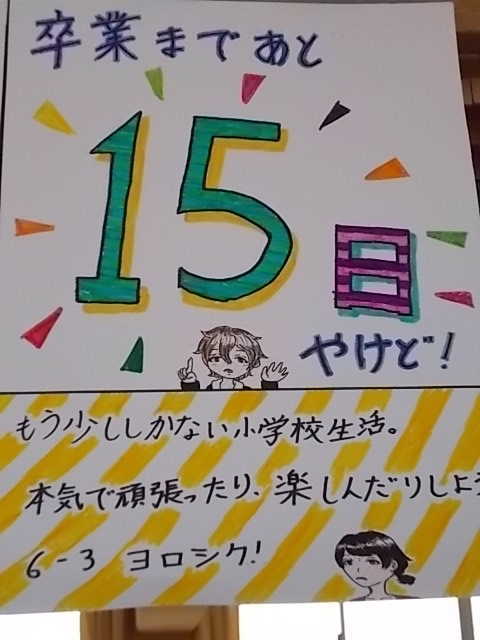 卒業まであと
15日
やけど!
もう少ししかない小学校生活。
本気で頑張ったり、楽しんだりしよう
6-3 ヨロシク!